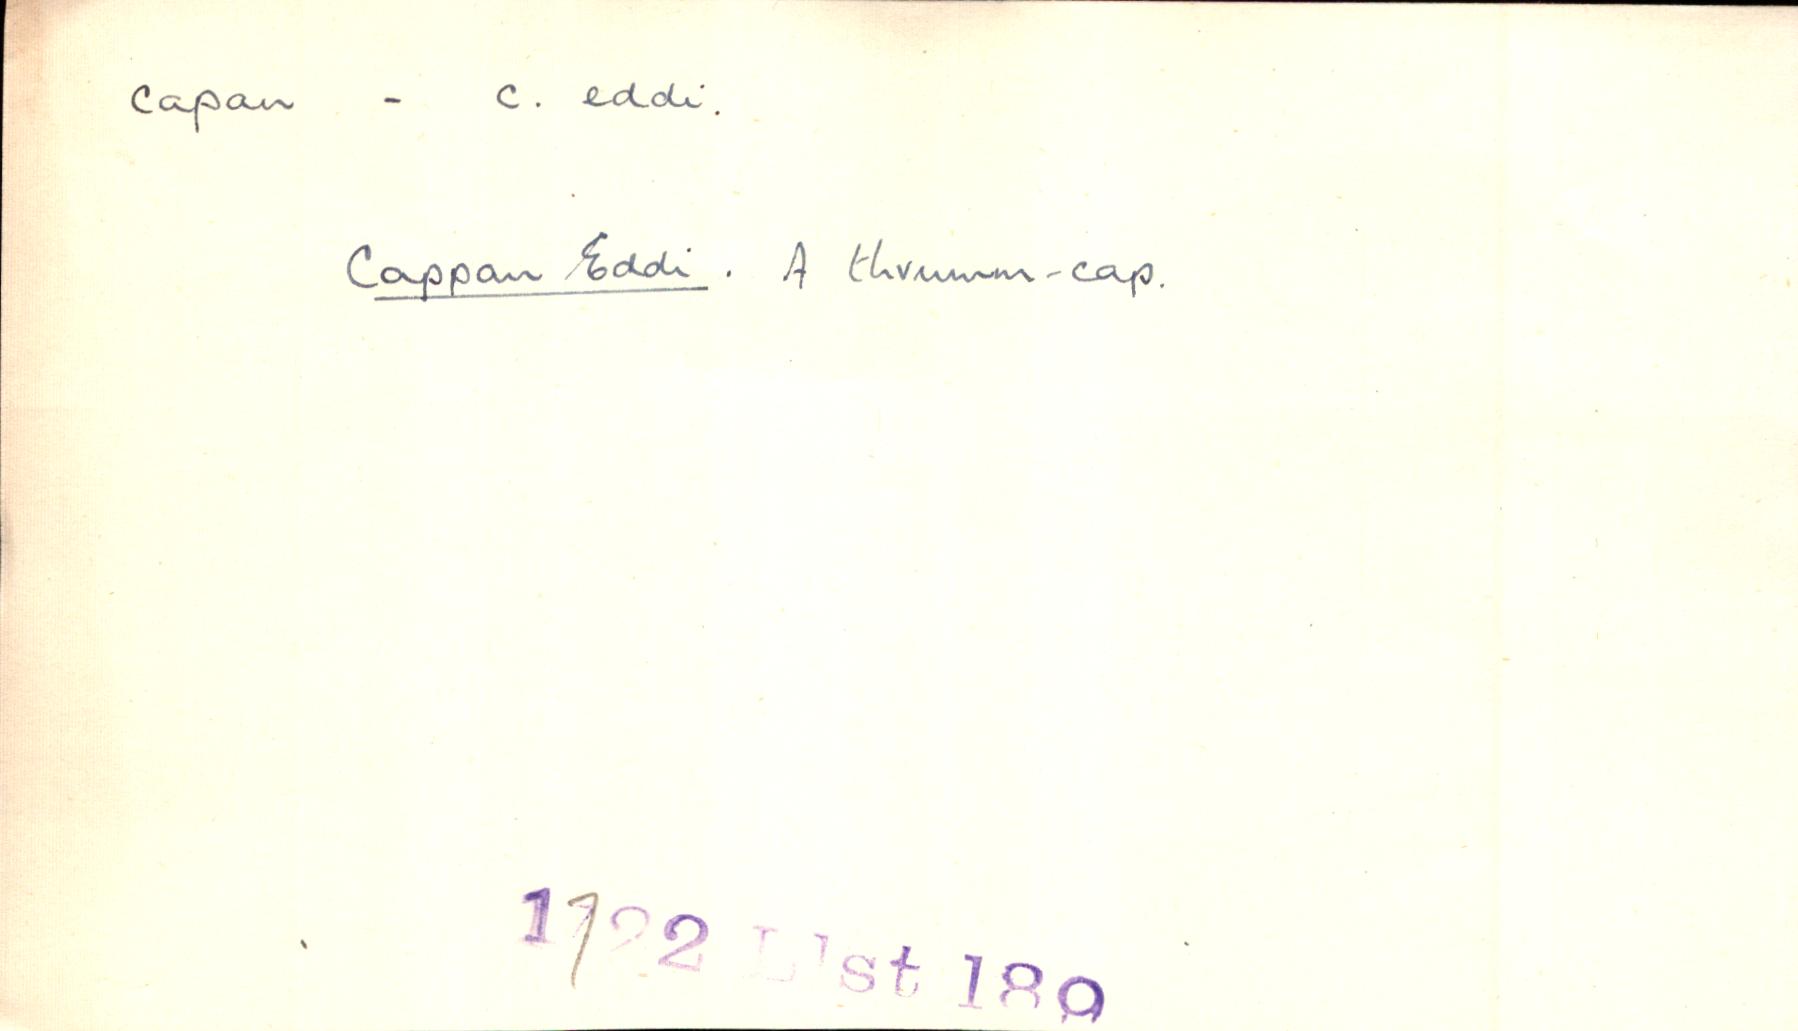 capan - c. eddi.
Cappan Eddi. A thrumm-cap.
1722 Llst 189